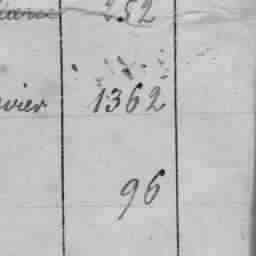 252
vier 1362
96